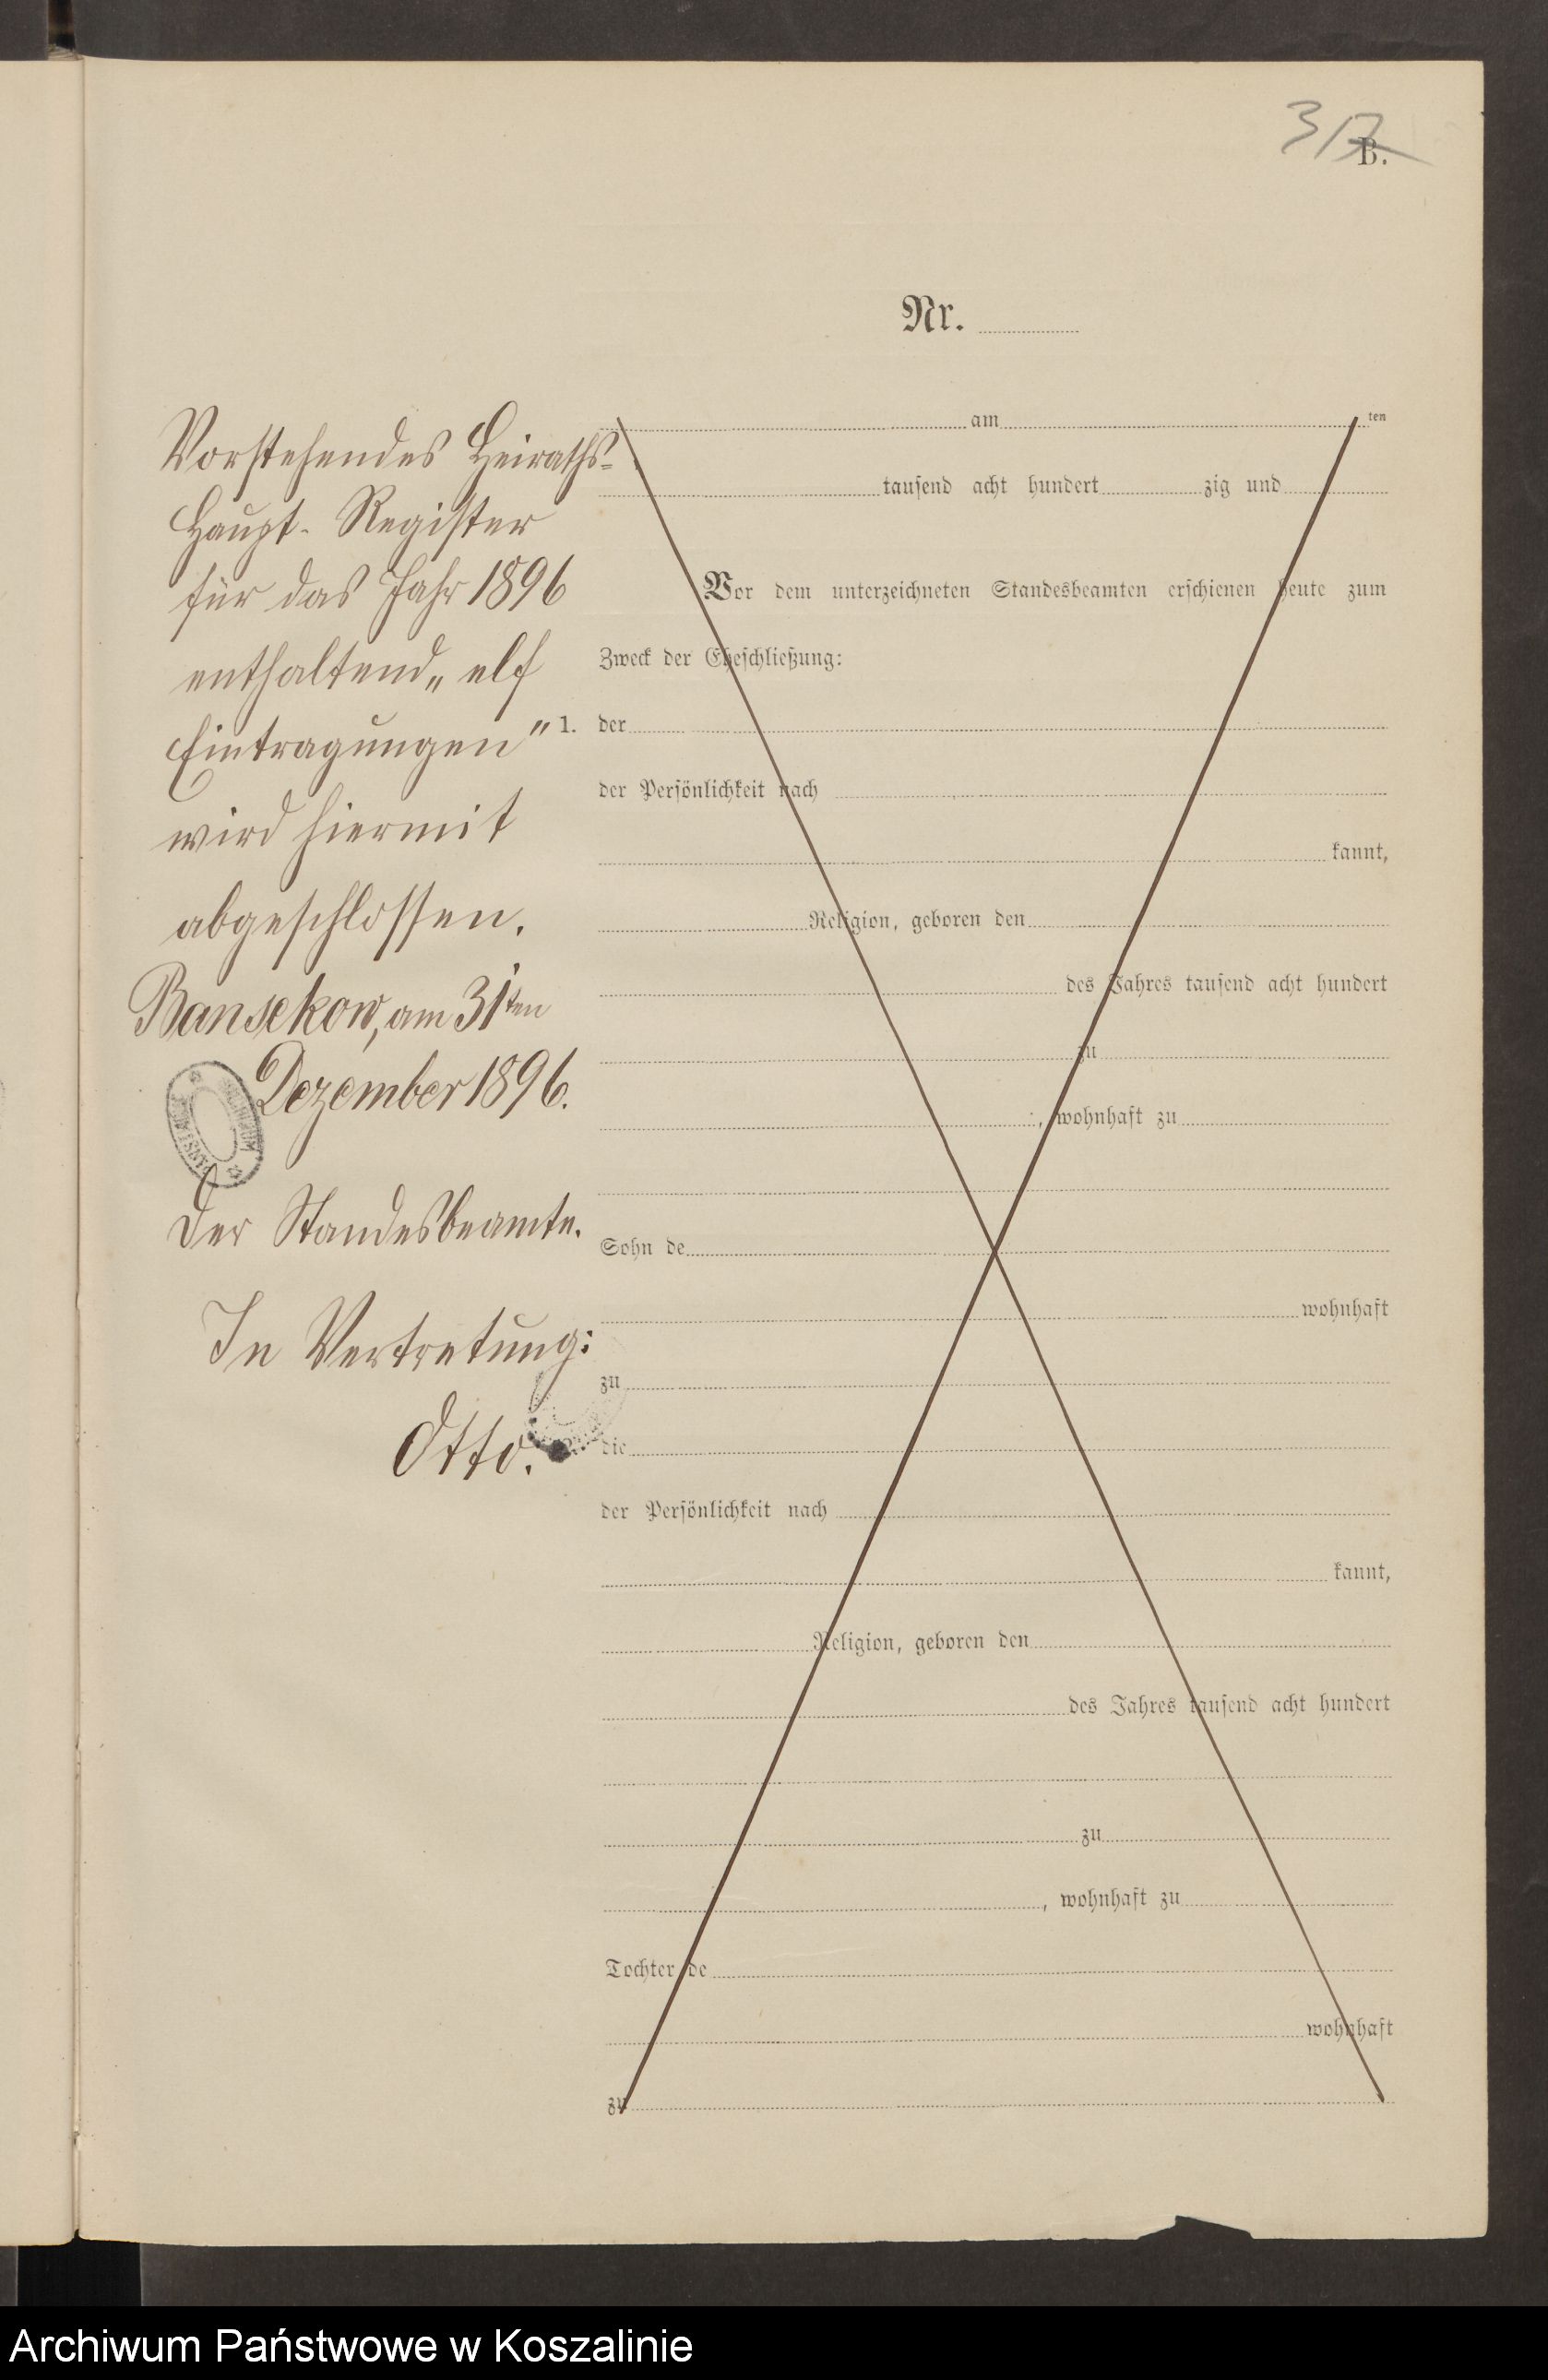 37
B.
Nr.
Vorstehendes Heiraths-
Haupt-Register
für das Jahr 1896
enthaltend „elf
Eintragungen"
wird hiermit
abgeschlossen.
Bansekow, am 31ten
Dezember 1896.
Der Standesbeamte.
In Vertretung:
Otto.
am ten
tausend acht hundert zig und
Vor dem unterzeichneten Standesbeamten erschienen heute zum
Zweck der Eheschließung:
1. der
der Persönlichkeit nach
kannt,
Religion, geboren den
des Jahres tausend acht hundert
zu
, wohnhaft zu
Sohn de
wohnhaft
zu
die
der Persönlichkeit nach
kannt,
Religion, geboren den
des Jahres tausend acht hundert
zu
, wohnhaft zu
Tochter de
wohnhaft
zu
Archiwum Państwowe w Koszalinie